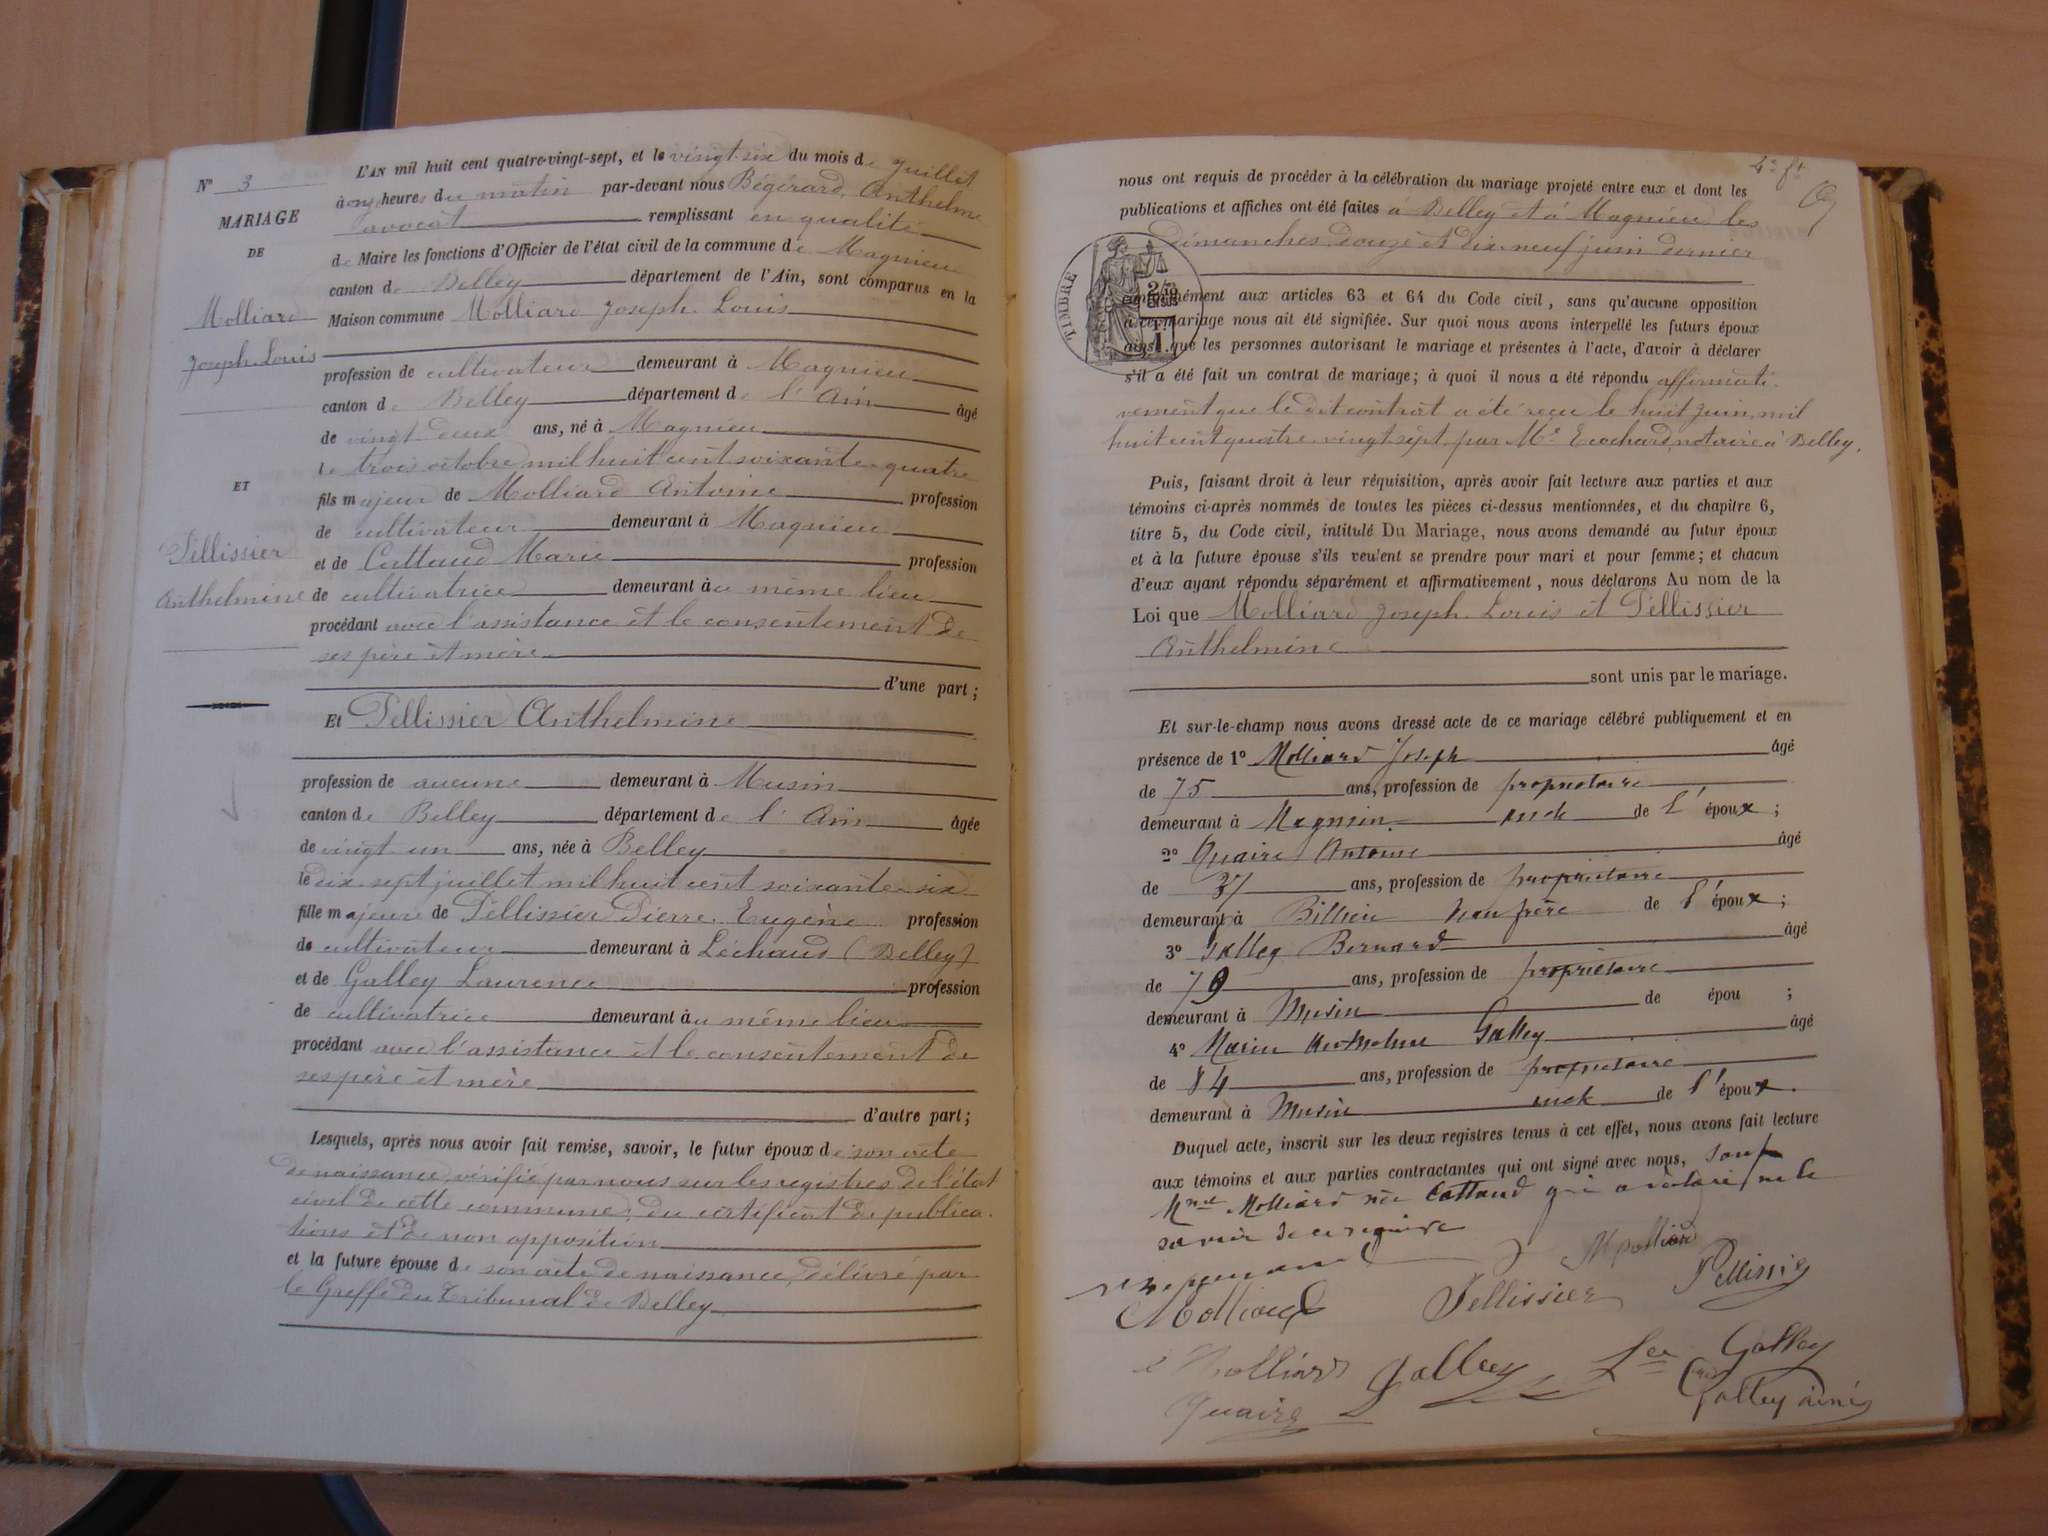 N° 3
MARIAGE
DE
Molliard
Joseph Louis
ET
Pellissier
Anthelmine
L'AN mil huit cent quatre-vingt-sept, et le vingt-six du mois de Juillet
à onze heures du matin par-devant nous Bégérard, Anthelme
avocat remplissant en qualité
de Maire les fonctions d'Officier de l'état civil de la commune de Magnieu
canton de Belley département de l'Ain, sont comparus en la
Maison commune Molliard Joseph Louis
profession de cultivateur demeurant à Magnieu
canton de Belley département de l'Ain âgé
de vingt deux ans, né à Magnieu
le trois octobre mil huit cent soixante-quatre
fils majeur de Molliard Antoine profession
de cultivateur demeurant à Magnieu
et de Cattaud Marie profession
de cultivatrice demeurant au même lieu
procédant avec l'assistance et le consentement de
ses père et mère
d'une part;
Et Pellissier Anthelmine
profession de aucune demeurant à Musin
canton de Belley département de l'Ain âgée
de vingt un ans, née à Belley
le dix sept juillet mil huit cent soixante-six
fille majeure de Pellissier Pierre Eugène profession
de cultivateur demeurant à Léchaud (Belley)
et de Galley Laurence profession
de cultivatrice demeurant au même lieu
procédant avec l'assistance et le consentement de
ses père et mère
d'autre part;
Lesquels, après nous avoir fait remise, savoir, le futur époux de son acte
de naissance, vérifié par nous sur les registres de l'état
civil de cette commune, du certificat de publica-
tions et de non opposition
et la future épouse de son acte de naissance, délivré par
le Greffe du Tribunal de Belley
4e ft
nous ont requis de procéder à la célébration du mariage projeté entre eux et dont les
publications et affiches ont été faites à Belley et à Magnieu les
Dimanches douze et dix-neuf juin dernier
TIMBRE
conformément aux articles 63 et 64 du Code civil, sans qu'aucune opposition
à ce mariage nous ait été signifiée. Sur quoi nous avons interpellé les futurs époux
ainsi que les personnes autorisant le mariage et présentes à l'acte, d'avoir à déclarer
s'il a été fait un contrat de mariage; à quoi il nous a été répondu affirmati-
vement que le dit contrat a été reçu le huit Juin mil
huit cent quatre-vingt sept par Me Ecochard, notaire à Belley.
Puis, faisant droit à leur réquisition, après avoir fait lecture aux parties et aux
témoins ci-après nommés de toutes les pièces ci-dessus mentionnées, et du chapitre 6,
titre 5, du Code civil, intitulé Du Mariage, nous avons demandé au futur époux
et à la future épouse s'ils veulent se prendre pour mari et pour femme; et chacun
d'eux ayant répondu séparément et affirmativement, nous déclarons Au nom de la
Loi que Molliard Joseph Louis et Pellissier
Anthelmine
sont unis par le mariage.
Et sur-le-champ nous avons dressé acte de ce mariage célébré publiquement et en
présence de 1° Molliard Joseph âgé
de 75 ans, profession de propriétaire
demeurant à Magnieu oncle de l'époux;
2° Quaire Antoine âgé
de 37 ans, profession de propriétaire
demeurant à Billieu beau frère de l'époux;
3° Galley Bernard âgé
de 79 ans, profession de propriétaire
demeurant à Musin de épou ;
4° Marin Anthelme Galley âgé
de 84 ans, profession de propriétaire
demeurant à Musin oncle de l'époux.
Duquel acte, inscrit sur les deux registres tenus à cet effet, nous avons fait lecture
aux témoins et aux parties contractantes qui ont signé avec nous, sauf
Mme Molliard née Cattaud qui a déclaré ne le
savoir de ce requise
Molliard
Molliard
Pellissier
Pellissier
Molliard
Galley
Galley
Quaire
Galley ainé